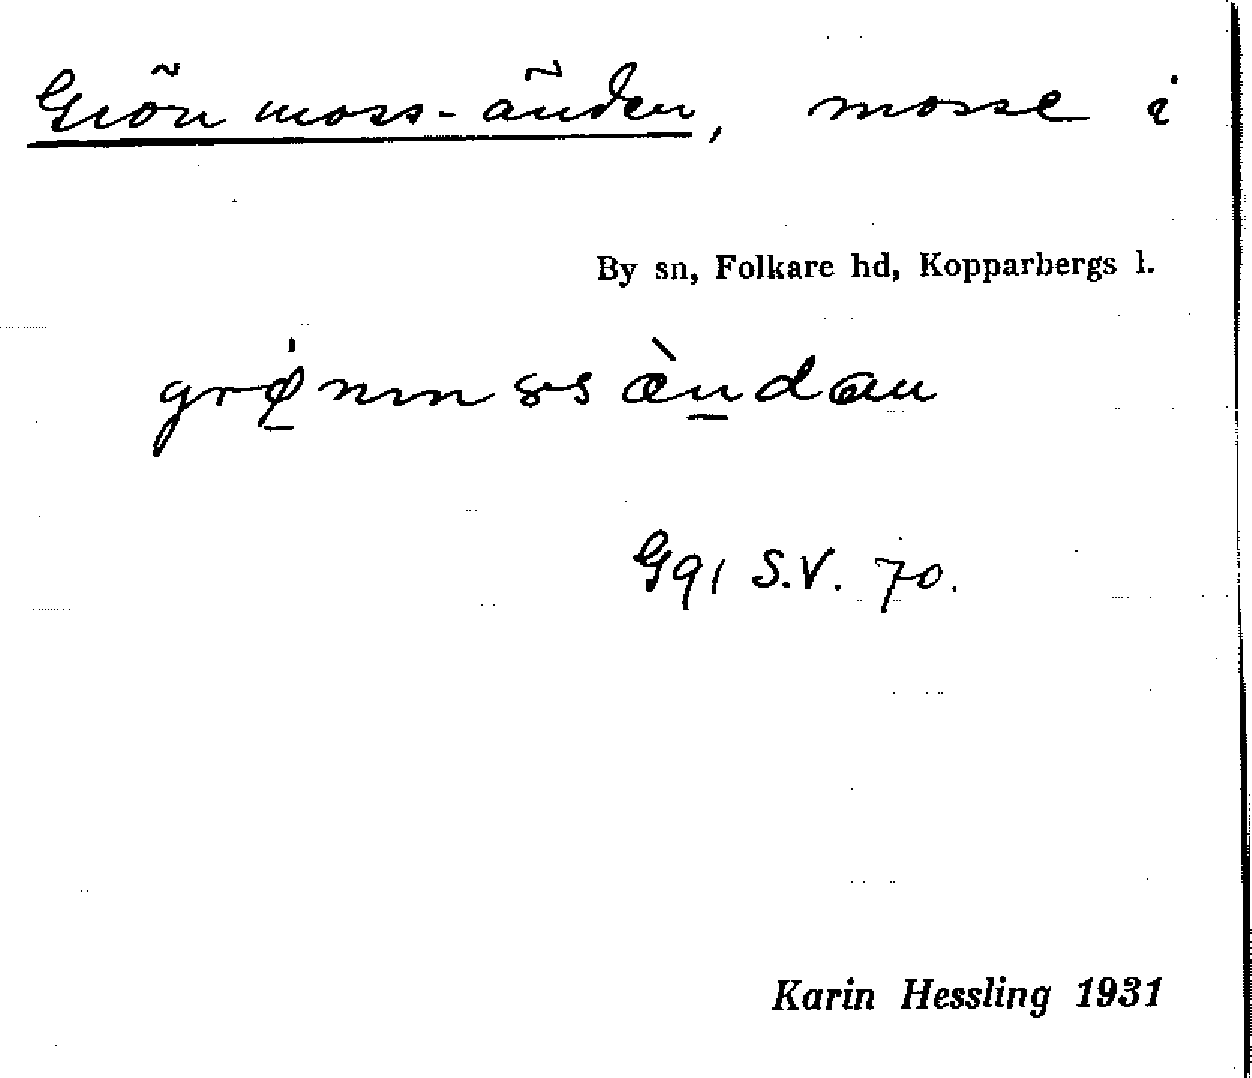 Grönmoss-änden, mosse i
By sn, Folkare hd, Kopparbergs l.
Gg1 S.V. 70.
Karin Hessling 1931